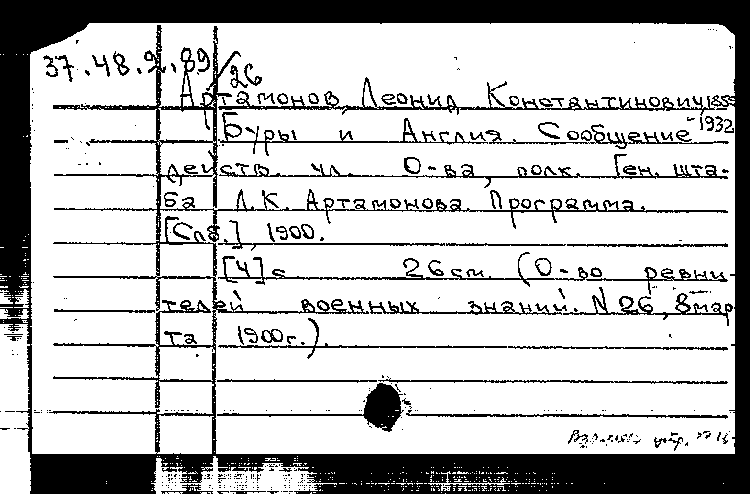 37.48.2.89/26
Артамонов, Леонид Константинович, 1859
-1932
Буры и Англия. Сообщение
действ. чл. О-ва, полк. Ген. шта-
ба Л.К. Артамонова. Программа.
[Спб.], 1900.
[4] с 26 см. (О-во ревни-
телей военных знаний. N 26, 8 мар-
та 1900 г.).